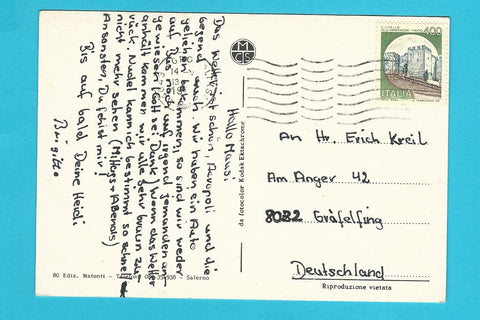 Hallo Mausi!
Das Wetter ist schön, Acropoli und die
Gegend auch. Wir haben ein Auto
geliehen bekommen, so sind wir weder
auf Bus noch auf irgend jemanden an-
gewiesen. Gott sei Dank! Wenn das Wetter
anhält kommen wir alle sehr braun zu-
rück. Nudel kann ich bestimmt so schnell
nicht mehr sehen (Mittags + Abends)
Ansonsten, Du fehlst mir!
Bis auf bald Deine Heidi
Brigitte
MCS
da fotocolor Kodak Ektachrome
80 Ediz. Matonti - Salerno
400
ITALIA
An Hr. Erich Kreil
Am Anger 42
8032 Gräfelfing
Deutschland
Riproduzione vietata